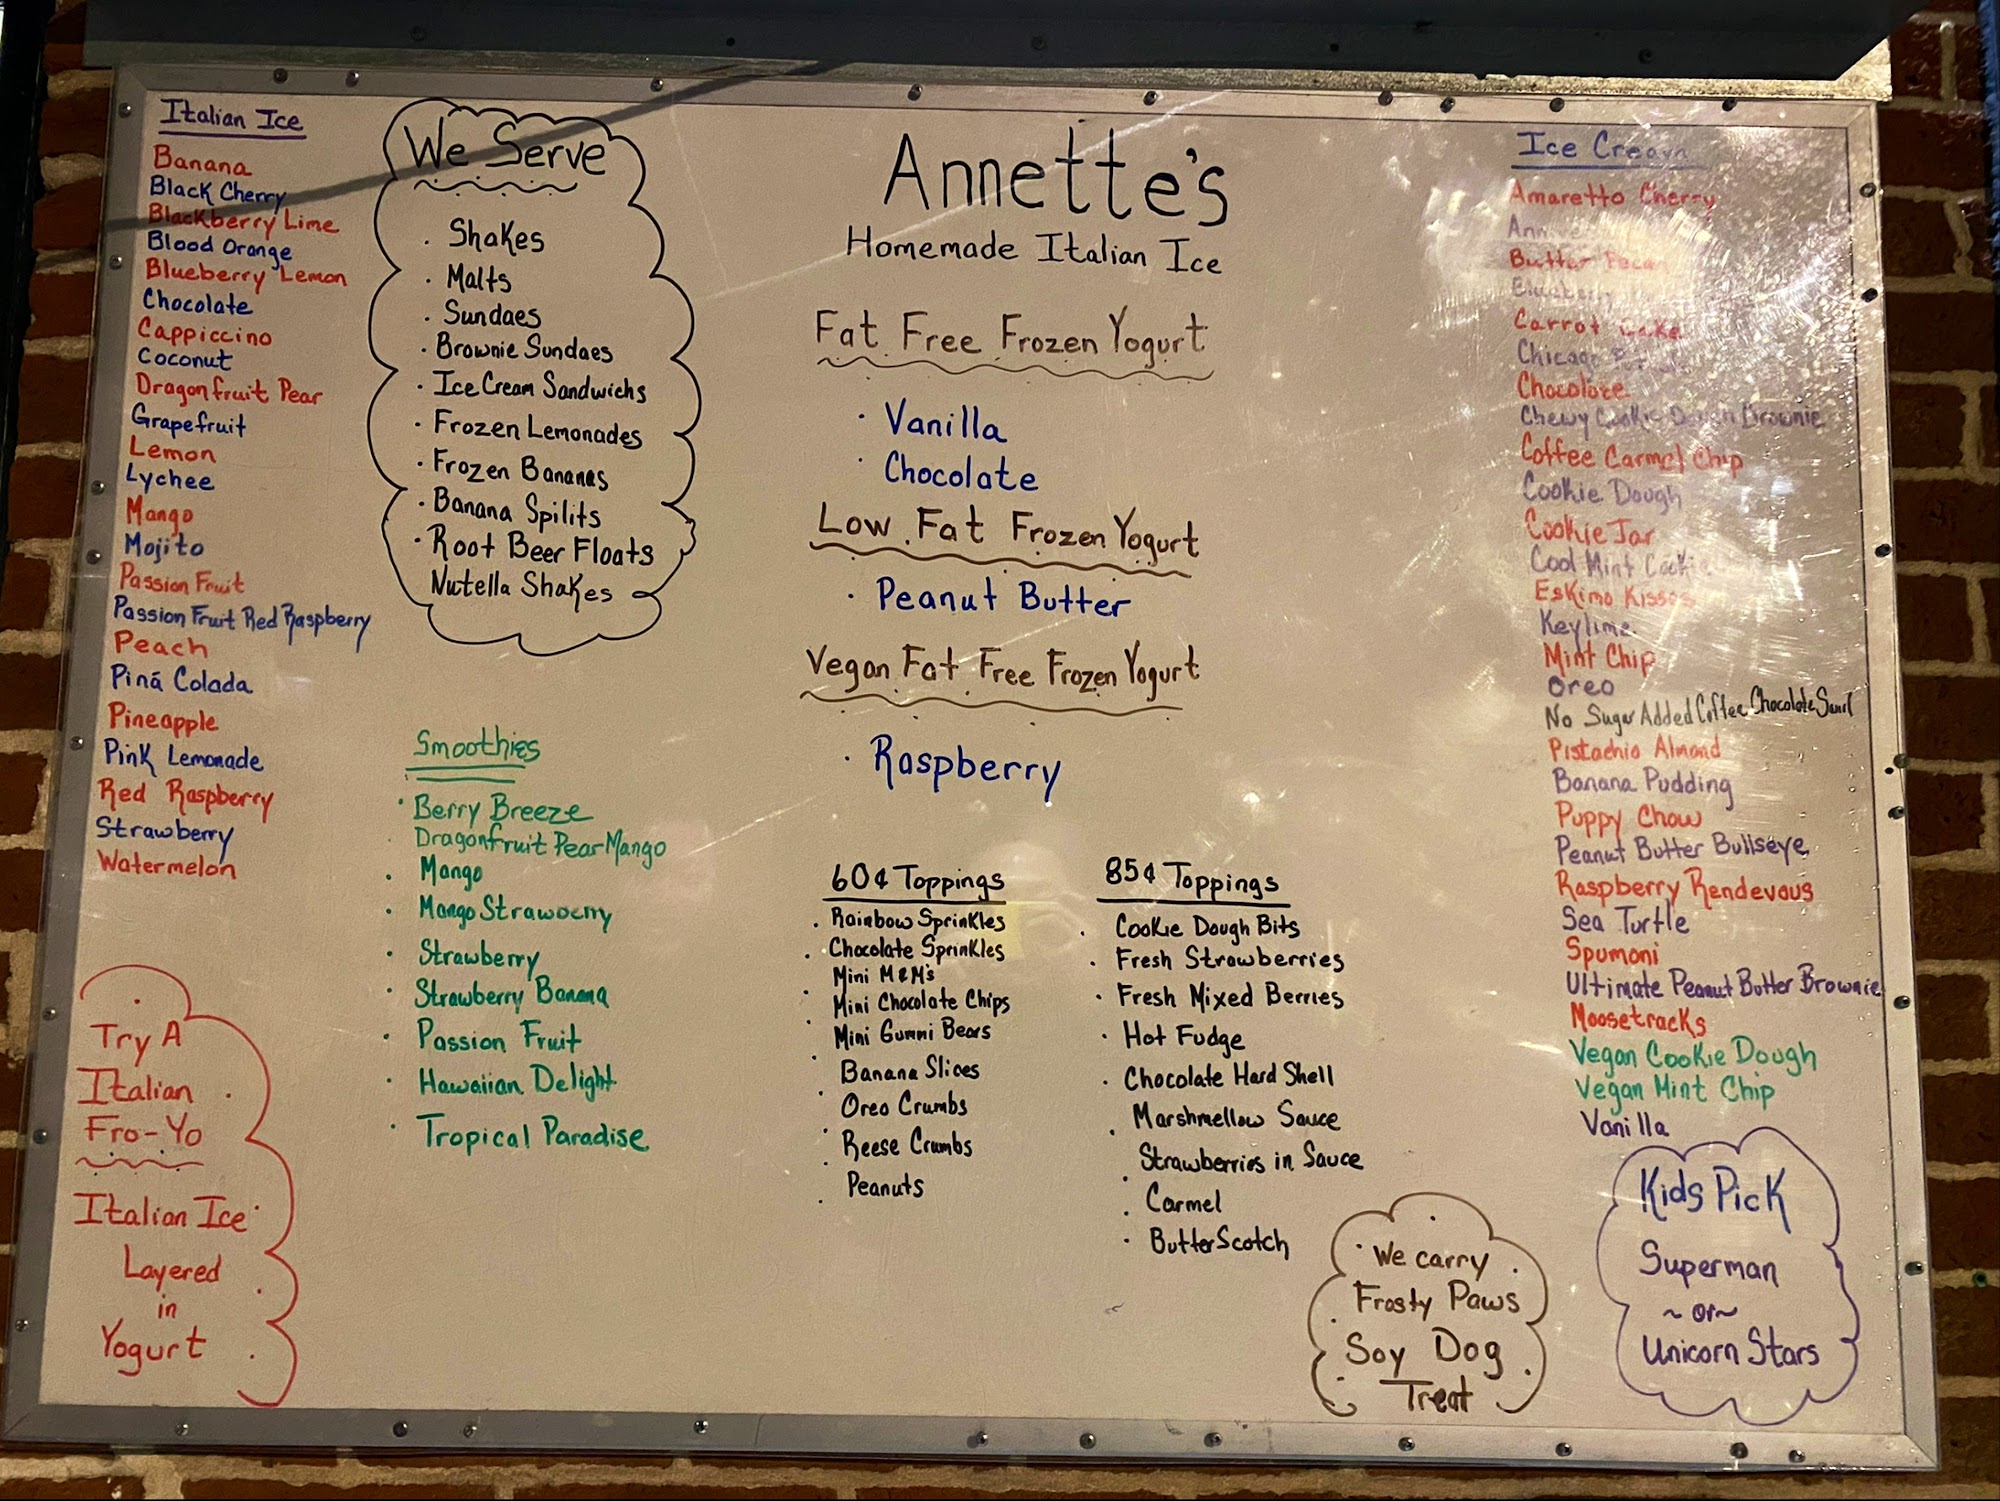 Italian Ice
Banana
Black Cherry
Blackberry Lime
Blood Orange
Blueberry Lemon
Chocolate
Cappiccino
Coconut
Dragonfruit Pear
Grapefruit
Lemon
Lychee
Mango
Mojito
Passion Fruit
Passion Fruit Red Raspberry
Peach
Piná Colada
Pineapple
Pink Lemonade
Red Raspberry
Strawberry
Watermelon
Try A
Italian
Fro-Yo
Italian Ice
Layered
in
Yogurt
We Serve
· Shakes
· Malts
· Sundaes
· Brownie Sundaes
· Ice Cream Sandwichs
· Frozen Lemonades
· Frozen Bananas
· Banana Spilits
· Root Beer Floats
Nutella Shakes
Smoothies
· Berry Breeze
Dragonfruit Pear Mango
· Mango
· Mango
· Strawberry
· Strawberry Banana
· Passion Fruit
· Hawaiian Delight
· Tropical Paradise
Annette's
Homemade Italian Ice
Fat Free Frozen Yogurt
· Vanilla
· Chocolate
Low Fat Frozen Yogurt
· Peanut Butter
Vegan Fat Free Frozen Yogurt
· Raspberry
60¢ Toppings
· Rainbow Sprinkles
· Chocolate Sprinkles
Mini M&M's
· Mini Chocolate Chips
· Mini Gummi Bears
· Banana Slices
· Oreo Crumbs
· Reese Crumbs
· Peanuts
85¢ Toppings
· Cookie Dough Bits
· Fresh Strawberries
· Fresh Mixed Berries
· Hot Fudge
· Chocolate Hard Shell
· Marshmellow Sauce
· Strawberries in Sauce
· Carmel
· ButterScotch
We carry
Frosty Paws
Soy Dog
Treat
Ice Cream
Amaretto Cherry
Butter Pecan
Blueberry
Carrot Cake
Chicago
Chocolate
Chewy Cookie Dough Brownie
Coffee Carmel Chip
Cookie Dough
Cookie Jar
Cool Mint Cookie
Eskimo Kisses
Keylime
Mint Chip
Oreo
No Sugar Added Coffee Chocolate
Pistachio Almond
Banana Pudding
Puppy Chow
Peanut Butter Bullseye
Raspberry Rendevous
Sea Turtle
Spumoni
Ultimate Peanut Butter Brownie
Moosetracks
Vegan Cookie Dough
Vegan Mint Chip
Vanilla
Kids Pick
Superman
~ or ~
Unicorn Stars